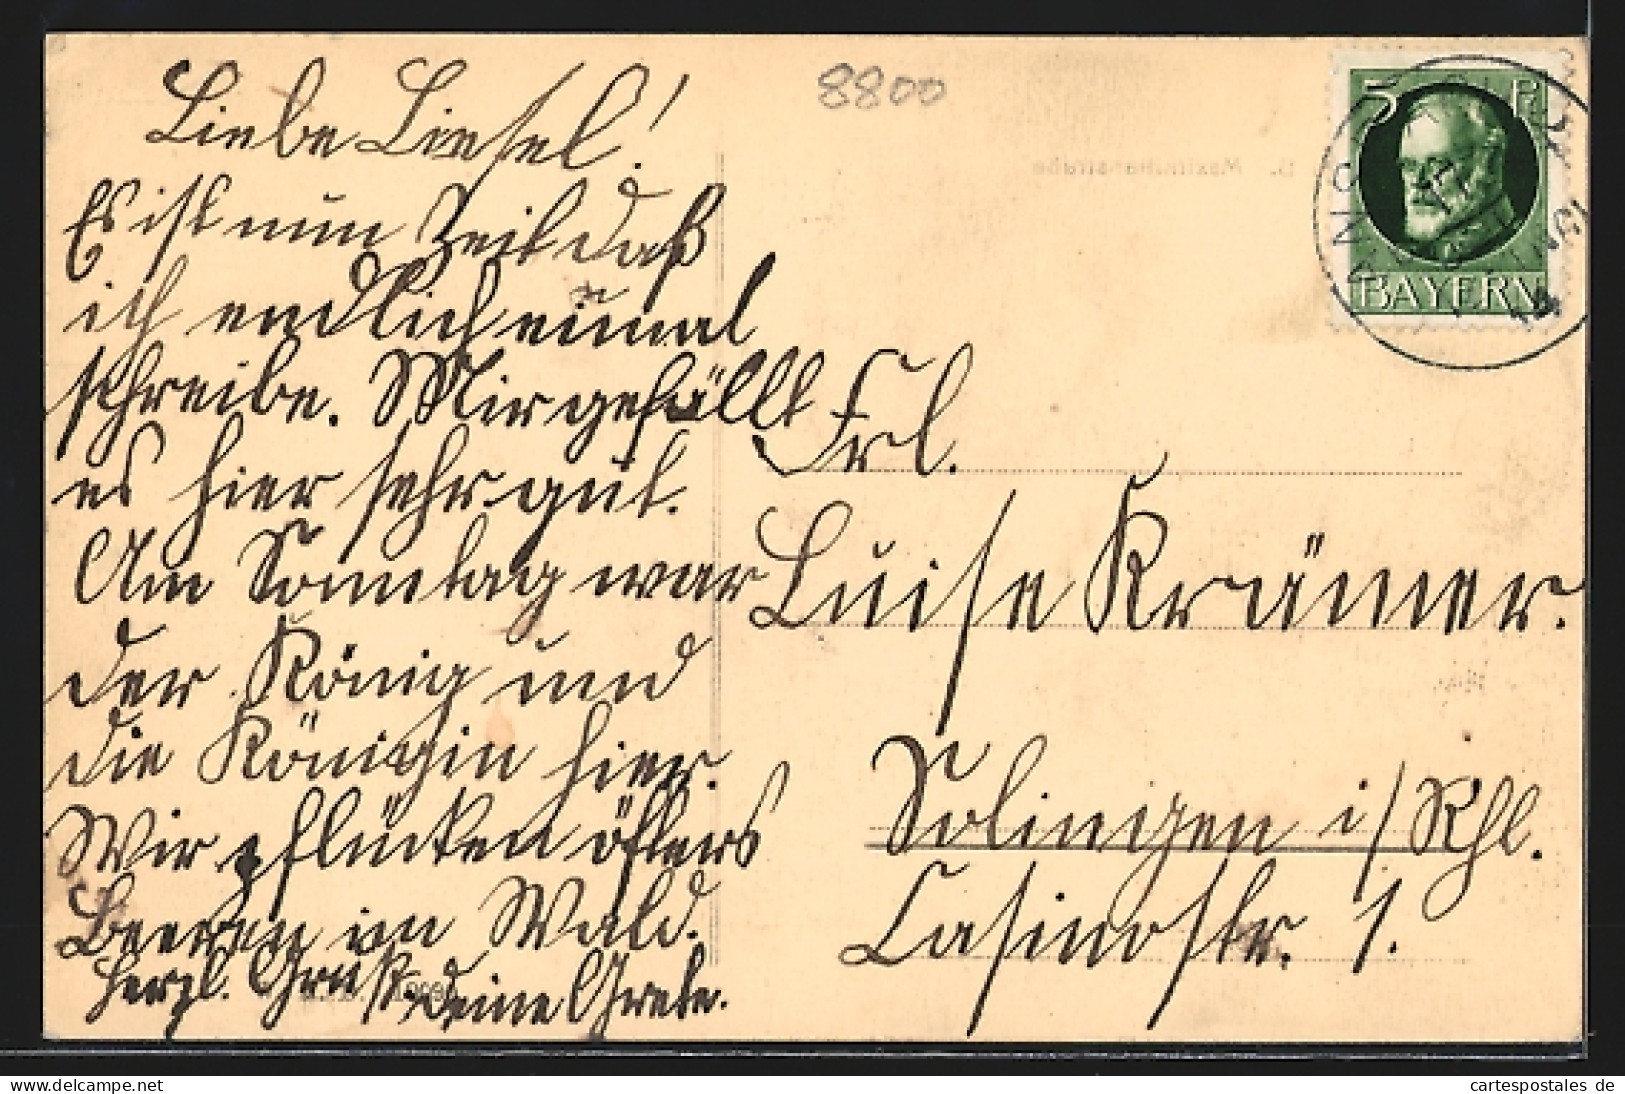 Liebe Liesel!
Es ist nun Zeit daß
ich endlich einmal
schreibe. Mir gefällt
es hier sehr gut.
Am Sonntag war
der König und
die Königin hier.
Wir pflücken öfters
Beeren im Wald.
Herzl. Gruß. Deine Grete.
8800
5 Pf
BAYERN
14
Frl.
Luise Krämer.
Solingen i/Rhl.
Casinostr. 1.
The best of Delcampe
cartespostales de